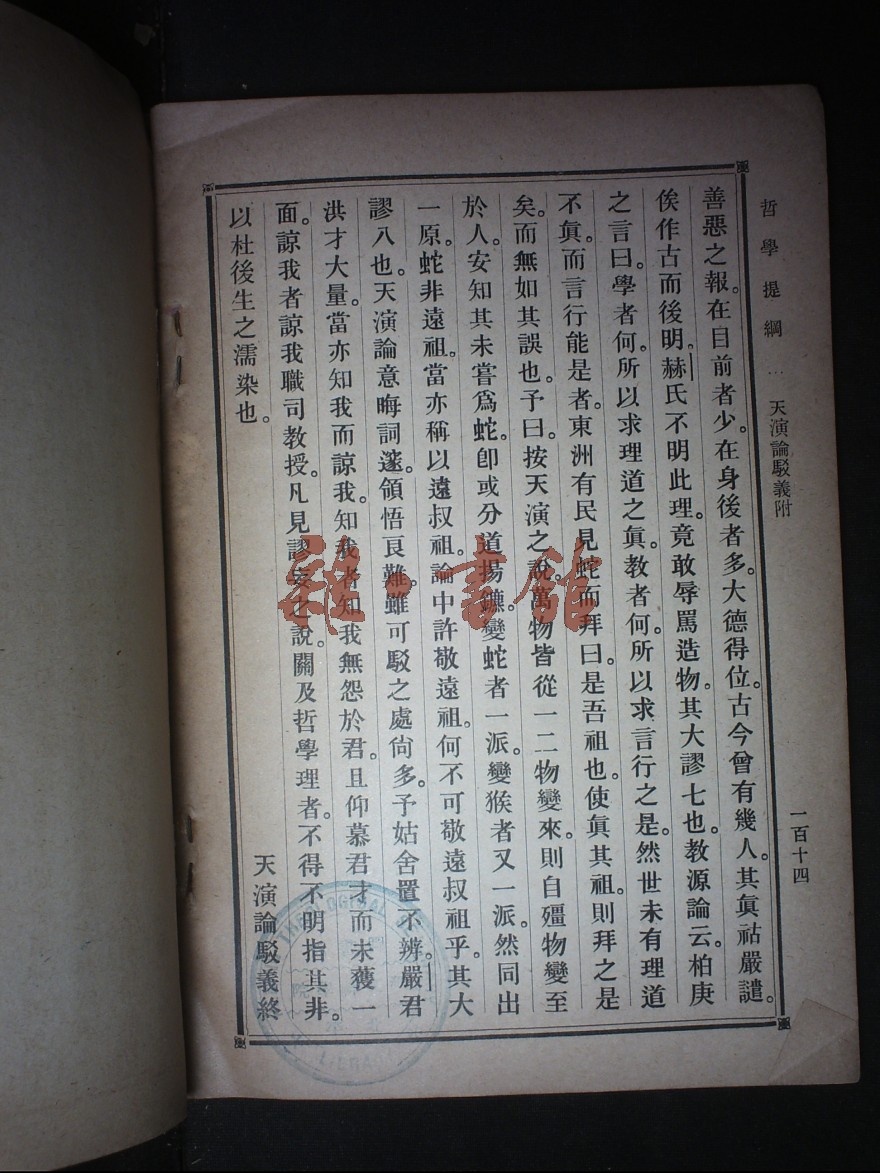 哲學提綱 … 天演論駁義附
一百十四
善惡之報。在目前者少。在身後者多。大德得位。古今曾有幾人。其眞祜嚴譴。
俟作古而後明。赫氏不明此理。竟敢辱罵造物。其大謬七也。敎源論云。柏庚
之言曰。學者何。所以求理道之眞。敎者何。所以求言行之是。然世未有理道
不眞。而言行能是者。東洲有民見蛇而拜曰。是吾祖也。使眞其祖。則拜之是
矣。而無如其誤也。予曰。按天演之說。萬物皆從一二物變來。則自殭物變至
於人。安知其未嘗爲蛇。卽或分道揚鑣。變蛇者一派。變猴者又一派。然同出
一原。蛇非遠祖。當亦稱以遠叔祖。論中許敬遠祖。何不可敬遠叔祖乎。其大
謬八也。天演論意晦詞邃。領悟良難。雖可駁之處尙多。予姑舍置不辨。嚴君
洪才大量。當亦知我而諒我。知我者知我無怨於君。且仰慕君才而未獲一
面。諒我者諒我職司敎授。凡見謬妄之說。關及哲學理者。不得不明指其非。
以杜後生之濡染也。
天演論駁義終
雜·書館
THEOLOGICAL
LIBRARY